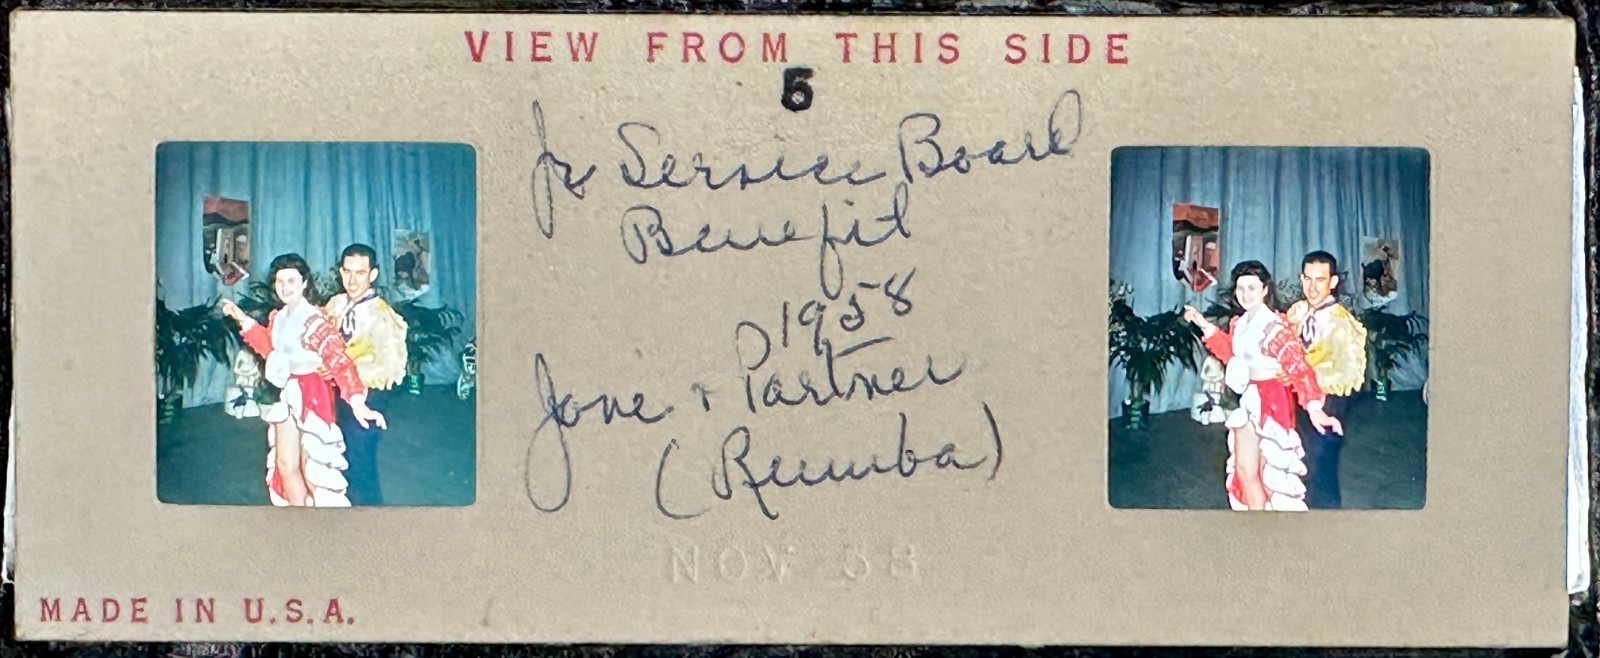 VIEW FROM THIS SIDE
5
Jr Service Board
Benefit
1958
Jane + Partner
(Rumba)
NOV 58
MADE IN U.S.A.